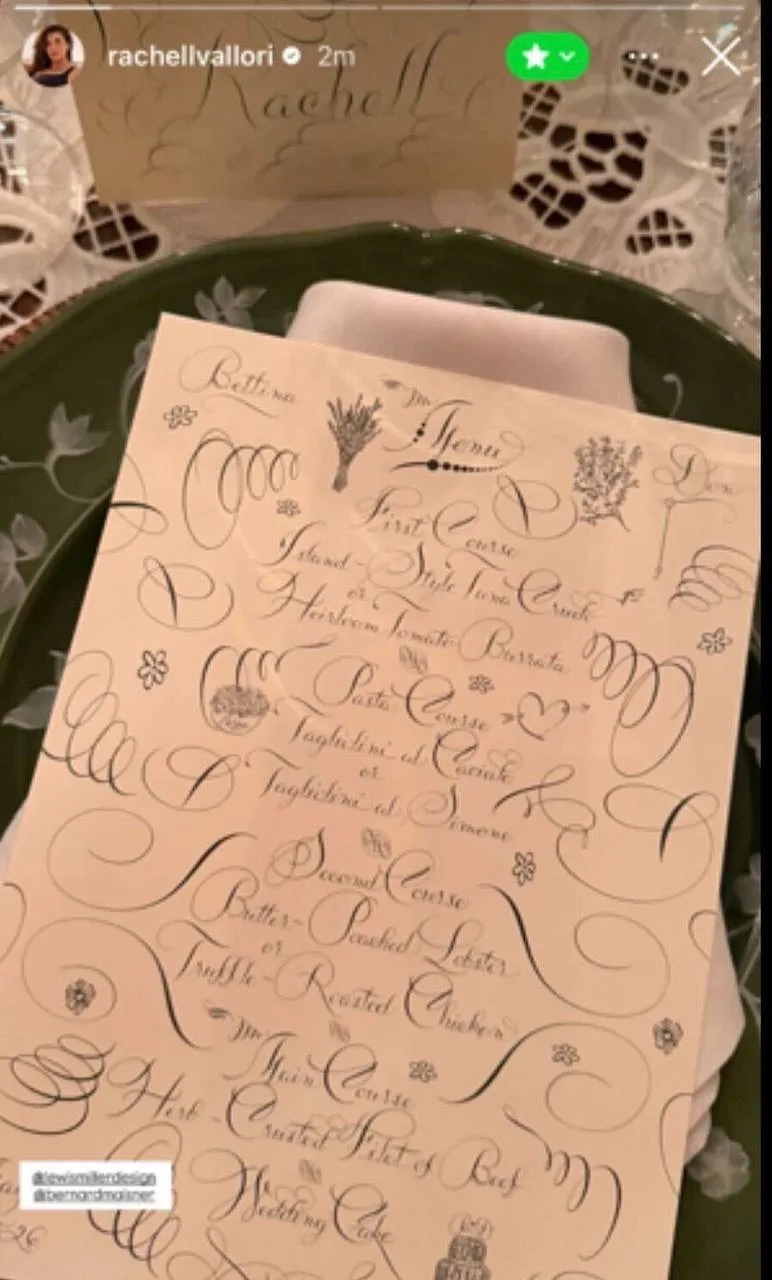 rachellvallori 2m
Rachell
Bettina
Menu
First Course
Island-Style Tuna Crudo
or
Heirloom Tomato Burrata
Pasta Course
Tagliolini al Caviale
or
Tagliolini al Limone
Second Course
Butter-Poached Lobster
or
Truffle-Roasted Chicken
Main Course
Herb-Crusted Filet of Beef
Wedding Cake
@lewismillerdesign
@bernardmaisner
26